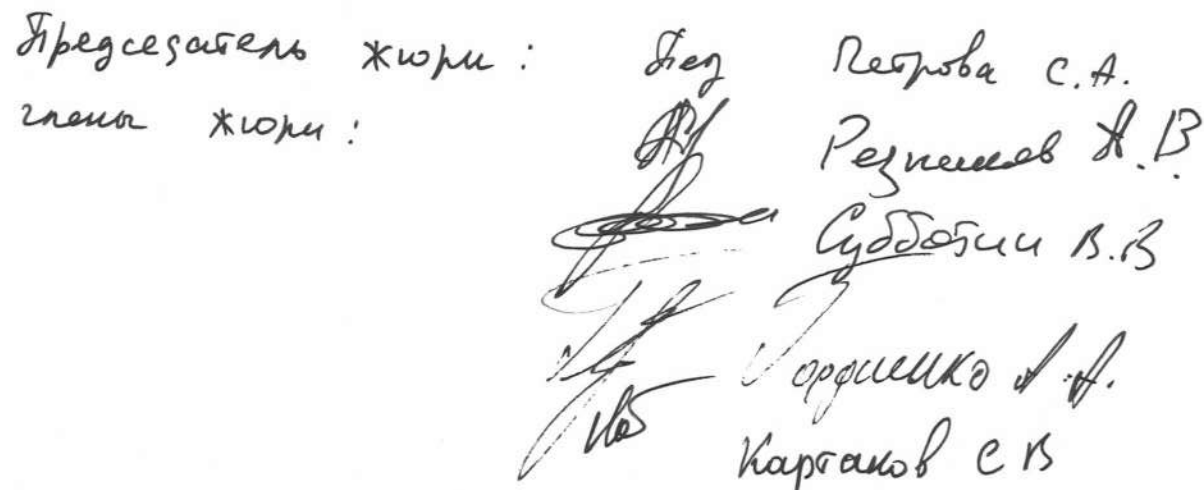 Председатель жюри: Петрова С.А.
члены жюри: Резников А.В.
Субботин В.В
Гордиенко А.А.
Картаков С В